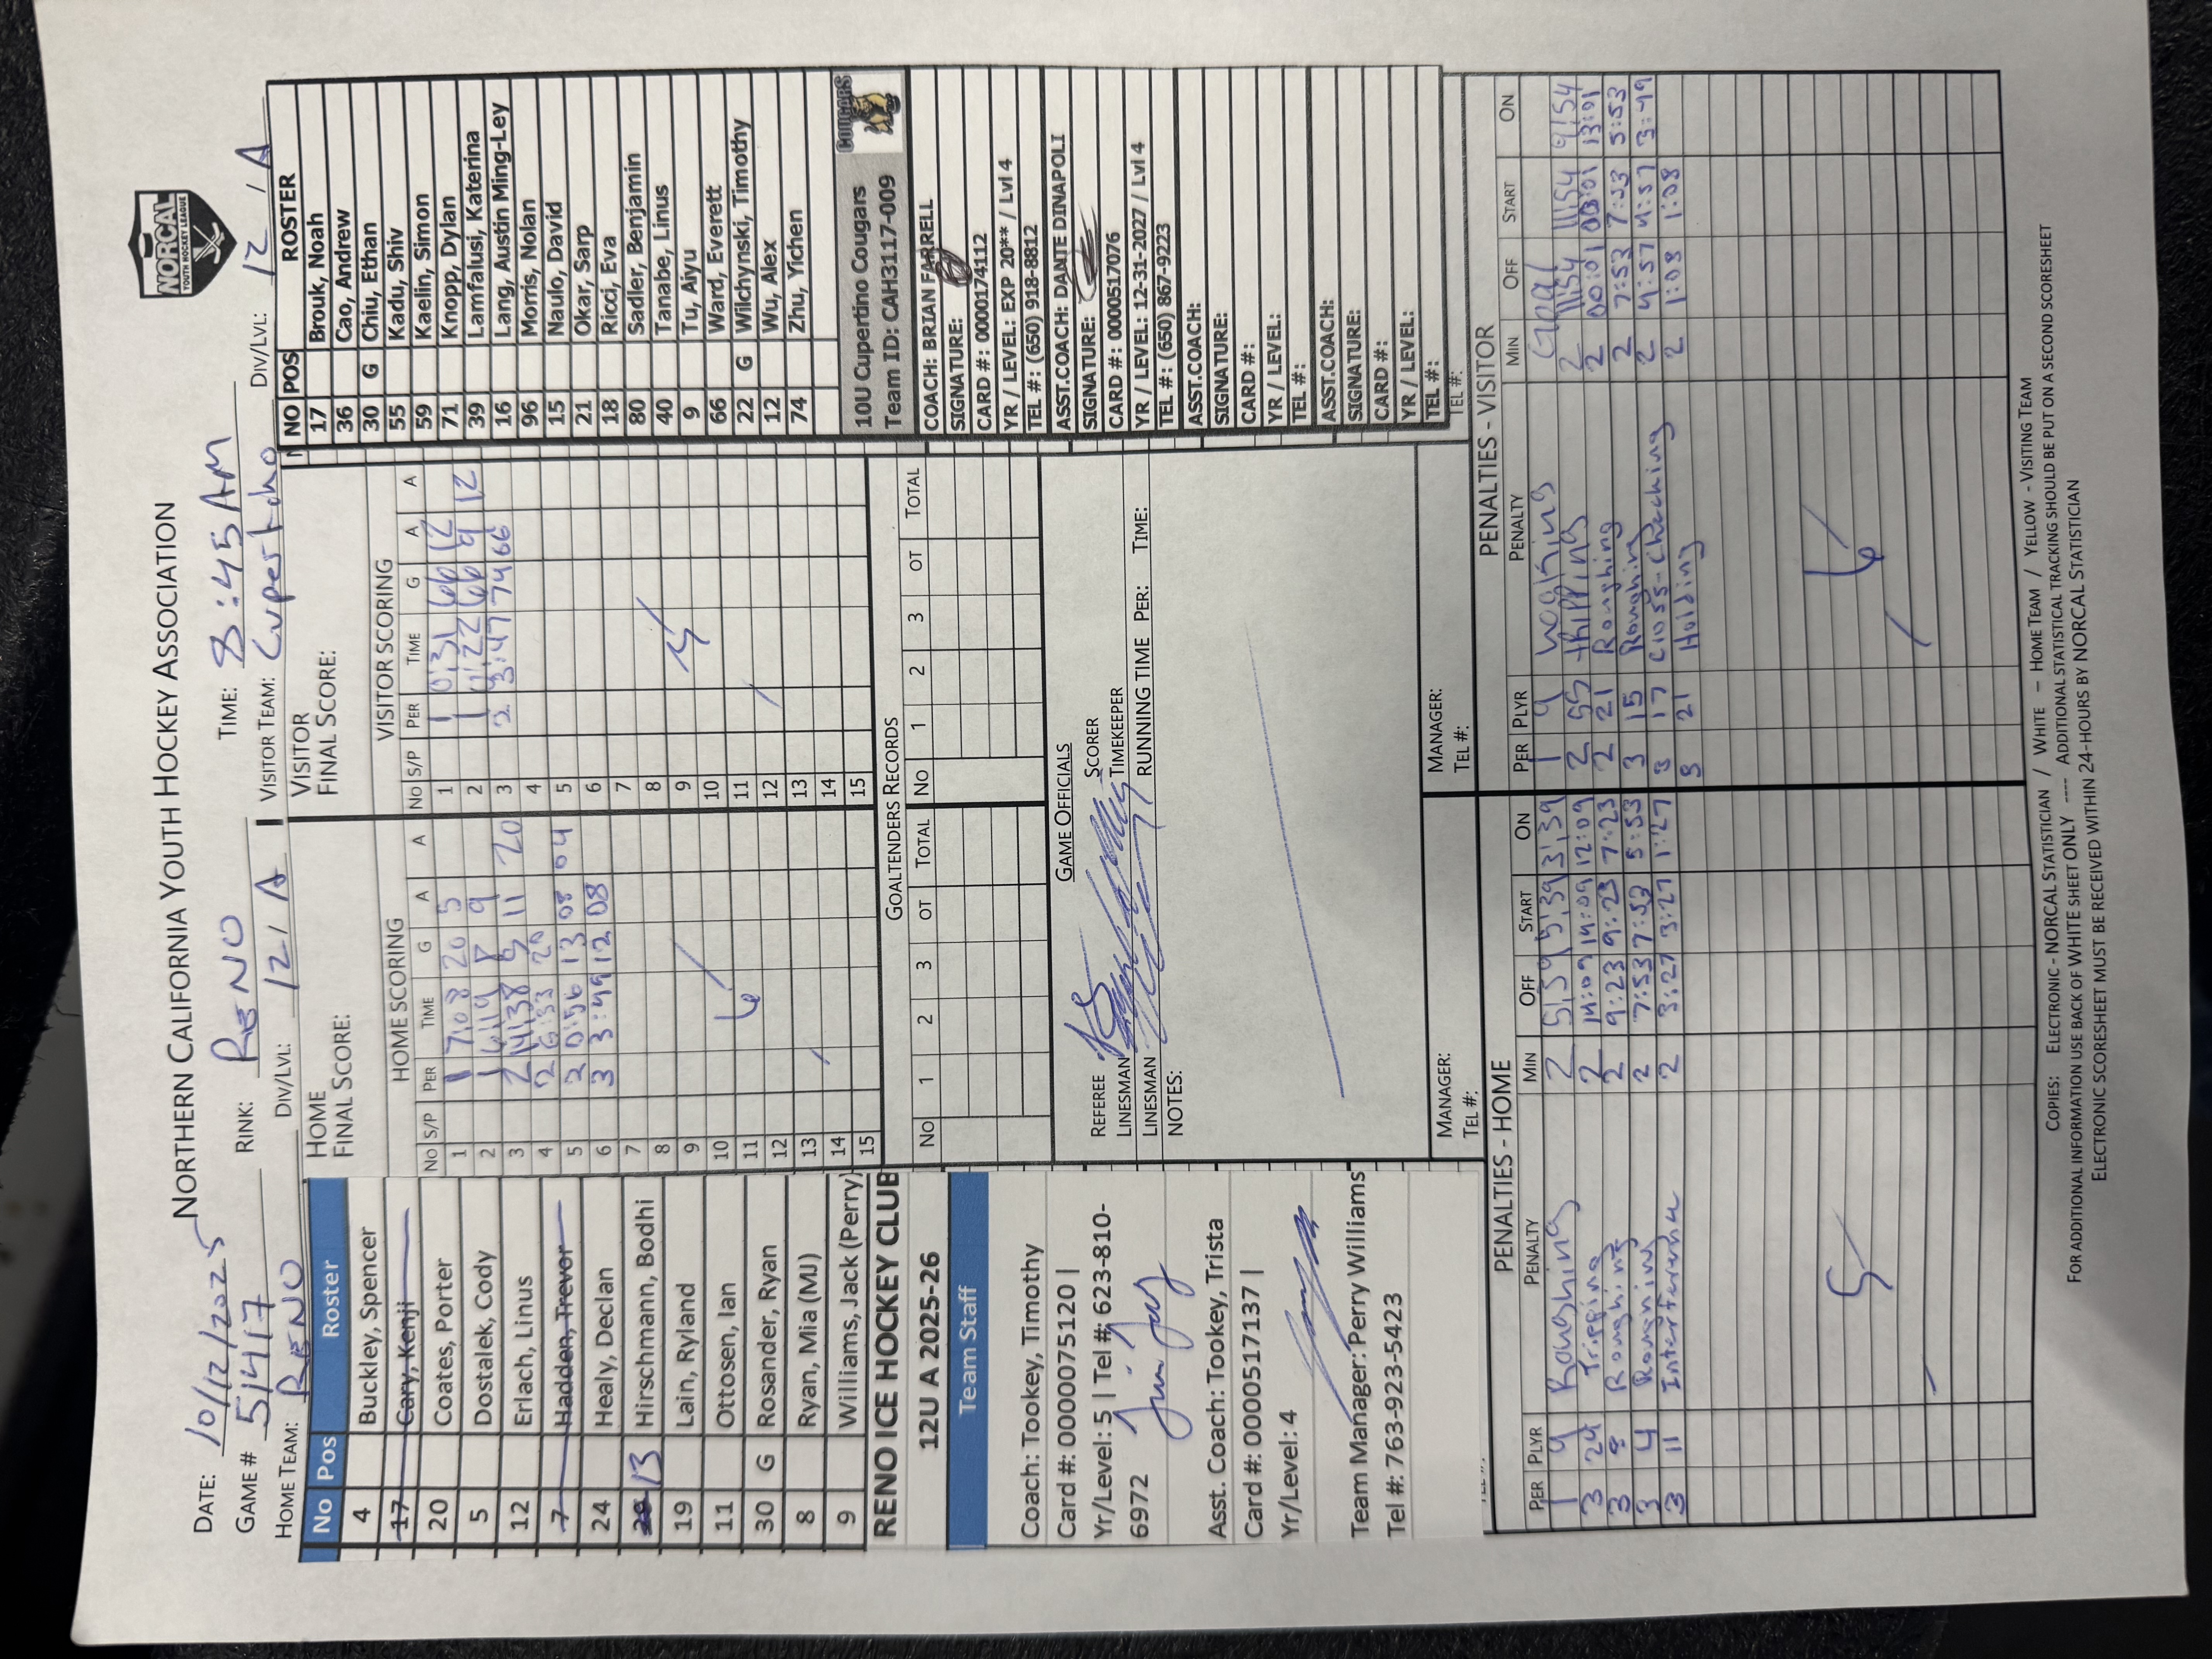 NORTHERN CALIFORNIA YOUTH HOCKEY ASSOCIATION
NORCAL
YOUTH HOCKEY LEAGUE
DATE: 10/12/2025
GAME # 5417 RINK: RENO TIME: 8:45AM
HOME TEAM: RENO DIV/LVL: 12/A VISITOR TEAM: DIV/LVL: 12/A
No Pos Roster
4 Buckley, Spencer
17 Cary, Kenji
20 Coates, Porter
5 Dostalek, Cody
12 Erlach, Linus
7 Hadden, Trevor
24 Healy, Declan
13 Hirschmann, Bodhi
19 Lain, Ryland
11 Ottosen, Ian
30 G Rosander, Ryan
8 Ryan, Mia (MJ)
9 Williams, Jack (Perry)
RENO ICE HOCKEY CLUB
12U A 2025-26
Team Staff
Coach: Tookey, Timothy
Card #: 0000075120 |
Yr/Level: 5 | Tel #: 623-810-
6972
Asst. Coach: Tookey, Trista
Card #: 0000517137 |
Yr/Level: 4
Team Manager: Perry Williams
Tel #: 763-923-5423
HOME
FINAL SCORE:
HOME SCORING
No S/P PER TIME G A A
1 1 7:08 20 5
2 1 9
3 2 11:38 11 20
4 2 6:33 20
5 2 0:56 13 08 04
6 3 3:49 12 08
7
8
9
10
11
12
13
14
15
6
VISITOR
FINAL SCORE:
VISITOR SCORING
No S/P PER TIME G A A
1 1 0:31 66 12
2 1 1:22 66 9 12
3 2 3:47 74 66
4
5
6
7
8
9
10
11
12
13
14
15
NO POS ROSTER
17 Brouk, Noah
36 Cao, Andrew
30 G Chiu, Ethan
55 Kadu, Shiv
59 Kaelin, Simon
71 Knopp, Dylan
39 Lamfalusi, Katerina
16 Lang, Austin Ming-Ley
96 Morris, Nolan
15 Naulo, David
21 Okar, Sarp
18 Ricci, Eva
80 Sadler, Benjamin
40 Tanabe, Linus
9 Tu, Aiyu
66 Ward, Everett
22 G Wilchynski, Timothy
12 Wu, Alex
74 Zhu, Yichen
10U Cupertino Cougars
Team ID: CAH3117-009
COUGARS
COACH: BRIAN FARRELL
SIGNATURE:
CARD #: 0000174112
YR / LEVEL: EXP 20** / Lvl 4
TEL #: (650) 918-8812
ASST.COACH: DANTE DINAPOLI
SIGNATURE:
CARD #: 0000517076
YR / LEVEL: 12-31-2027 / Lvl 4
TEL #: (650) 867-9223
ASST.COACH:
SIGNATURE:
CARD #:
YR / LEVEL:
TEL #:
ASST.COACH:
SIGNATURE:
CARD #:
YR / LEVEL:
TEL #:
TEL #:
GOALTENDERS RECORDS
No 1 2 3 OT TOTAL No 1 2 3 OT TOTAL
GAME OFFICIALS
REFEREE SCORER
LINESMAN TIMEKEEPER
LINESMAN RUNNING TIME PER: TIME:
NOTES:
MANAGER:
TEL #:
MANAGER:
TEL #:
PENALTIES - HOME
PER PLYR PENALTY MIN OFF START ON
1 9 Roughing 2 5:39 5:39 3:39
3 24 Tripping 2 14:09 14:09 12:09
3 8 Roughing 2 9:23 9:23 7:23
3 4 Roughing 2 7:53 7:53 5:53
3 11 Interference 2 3:27 3:27 1:27
5
PENALTIES - VISITOR
PER PLYR PENALTY MIN OFF START ON
Goal
1 9 2 11:54 11:54 9:54
2 55 tripping 2 00:01 00:01 13:01
2 21 Roughing 2 7:53 5:53
3 15 Roughing 2 4:57 4:57
3 17 Cross-Checking 2 1:08 1:08
3 21 Holding
6
COPIES: ELECTRONIC - NORCAL STATISTICIAN / WHITE – HOME TEAM / YELLOW - VISITING TEAM
FOR ADDITIONAL INFORMATION USE BACK OF WHITE SHEET ONLY ---- ADDITIONAL STATISTICAL TRACKING SHOULD BE PUT ON A SECOND SCORESHEET
ELECTRONIC SCORESHEET MUST BE RECEIVED WITHIN 24-HOURS BY NORCAL STATISTICIAN